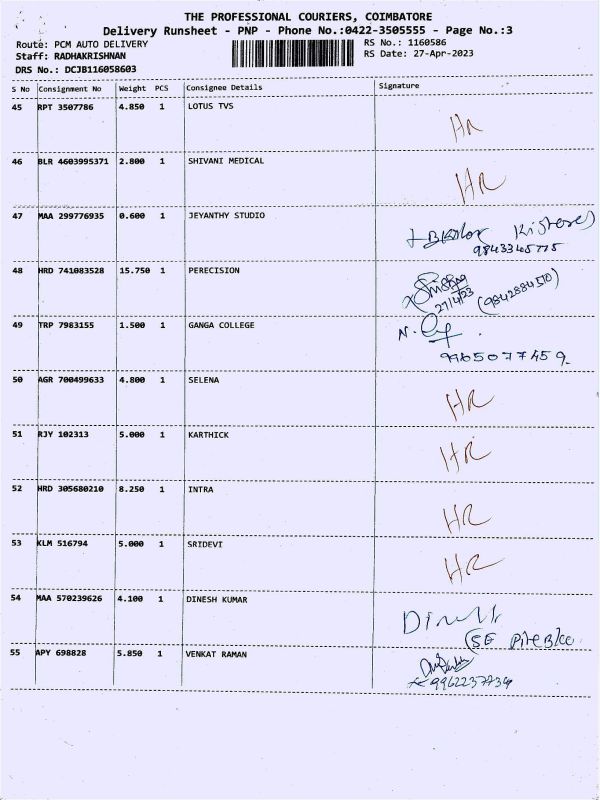 THE PROFESSIONAL COURIERS, COIMBATORE
Delivery Runsheet - PNP - Phone No.:0422-3505555 - Page No.:3
Route: PCM AUTO DELIVERY RS No.: 1160586
Staff: RADHAKRISHNAN RS Date: 27-Apr-2023
DRS No.: DCJB116058603
S No Consignment No Weight PCS Consignee Details Signature
45 RPT 3507786 4.850 1 LOTUS TVS
HR
46 BLR 4603995371 2.800 1 SHIVANI MEDICAL
HR
47 MAA 299776935 0.600 1 JEYANTHY STUDIO
9843345775
48 HRD 741083528 15.750 1 PERECISION
27/4/23 (9842884510)
49 TRP 7983155 1.500 1 GANGA COLLEGE
N.
9965077459
50 AGR 700499633 4.800 1 SELENA
HR
51 RJY 102313 5.000 1 KARTHICK
HR
52 HRD 305680210 8.250 1 INTRA
HR
53 KLM 516794 5.000 1 SRIDEVI
HR
54 MAA 570239626 4.100 1 DINESH KUMAR
55 APY 698828 5.850 1 VENKAT RAMAN